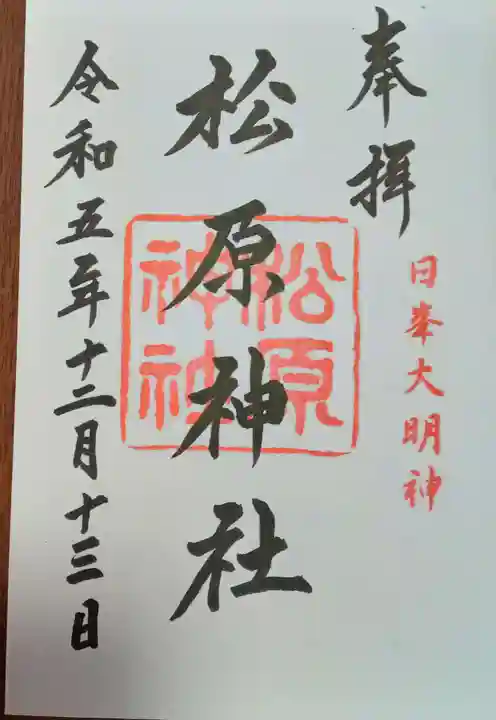 奉拝
日峯大明神
松原神社
松原神社
令和五年十二月十三日